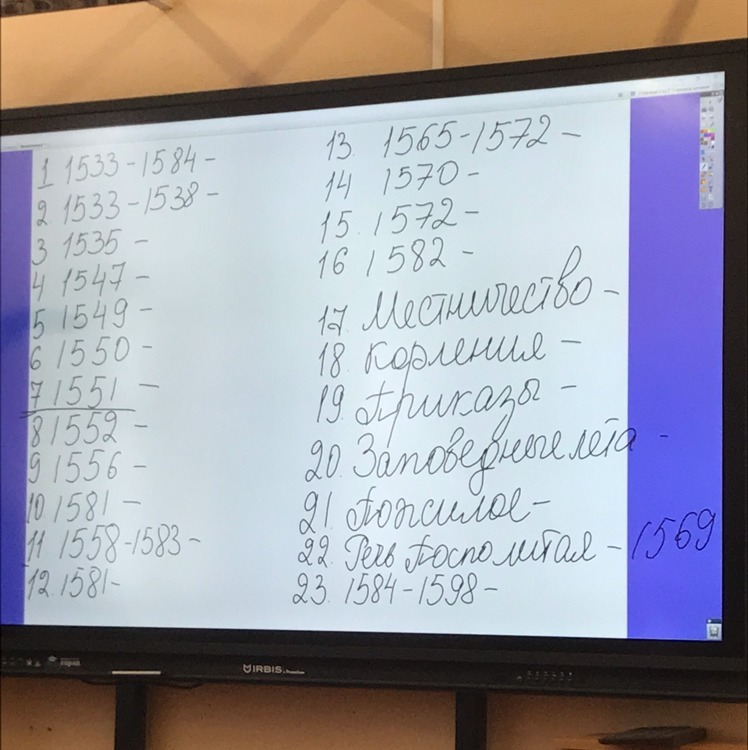 1 1533-1584-
2. 1533-1538-
3 1535 -
4 1547 -
5 1549 -
6 1550 -
7 1551 -
8 1552 -
9 1556 -
10 1581 -
11 1558-1583-
12. 1581-
13. 1565-1572-
14 1570-
15. 1572-
16 1582 -
17. Местничество-
18. Кормления-
19. Приказы -
20. Заповедные лета -
21. Пожилое-
22. Речь Посполитая - 1569
23. 1584-1598-
IRBIS